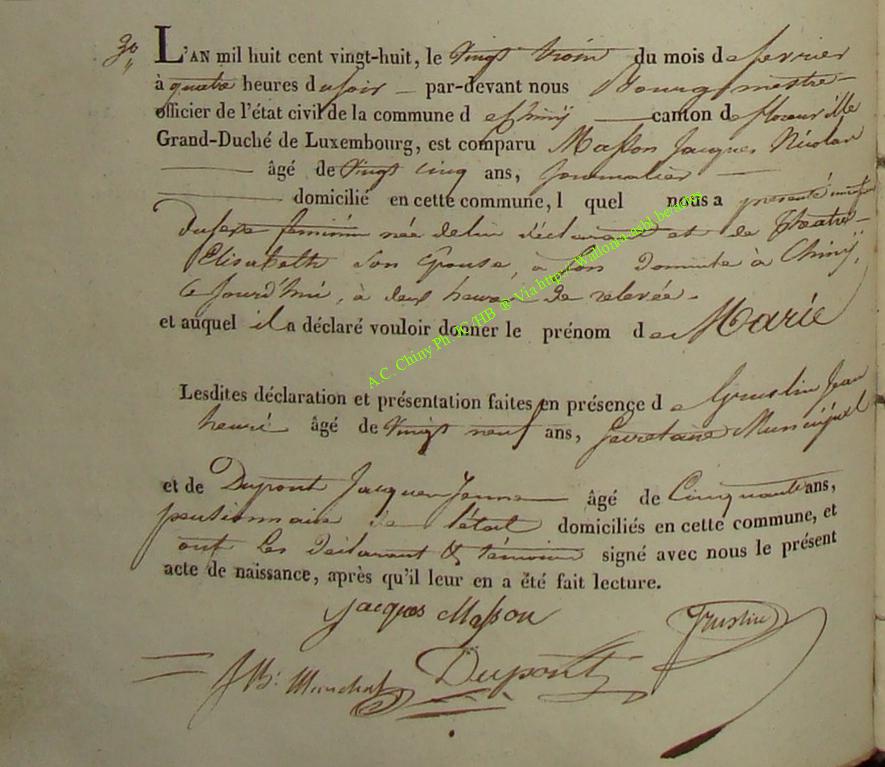 3e L'AN mil huit cent vingt-huit, le Vingt trois du mois de fevrier
à quatre heures du soir par-devant nous Bourgmestre
officier de l'état civil de la commune d e Chiny canton de florenville
Grand-Duché de Luxembourg, est comparu Masson Jacques Nicolas
âgé de Vingt cinq ans, Journalier
domicilié en cette commune, l quel nous a présenté
Du sexe feminin née de lui déclarant et de
Elisabeth son Epouse, à son Domicile a Chiny,
Ce Jourd'hui, à deux heures de relevée.
et auquel il a déclaré vouloir donner le prénom d e Marie
Lesdites déclaration et présentation faites en présence d e Gruslin Jean
henri âgé de Vingt neuf ans, Secretaire Municipal
et de Dupont Jacques Jenne âgé de Cinquante ans,
pensionnaire de l'état domiciliés en cette commune, et
ont les Déclarant & témoins signé avec nous le présent
acte de naissance, après qu'il leur en a été fait lecture.
Jacques Masson Gruslin
J Bt Marchal Dupont
A.C. Chiny Ph JG/HB @ Via http://Wallonia-asbl.be/amp